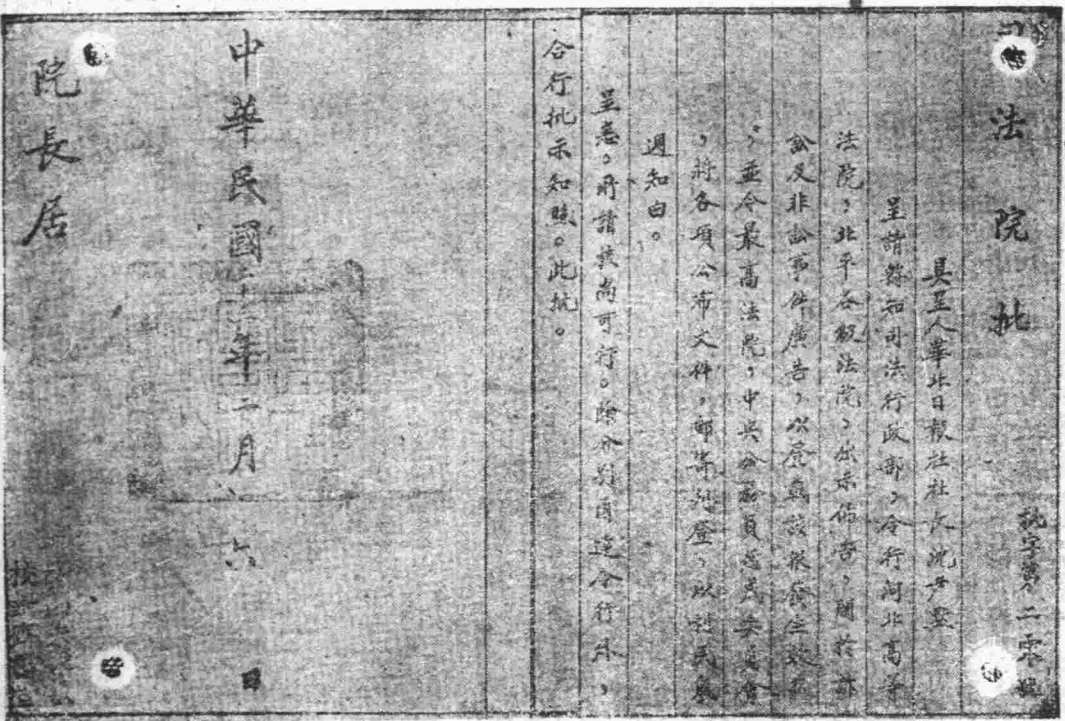 司法院批
批字第二零號
具呈人華北日報社社長沈
呈請轉知司法行政部,令行河北高等
法院,北平各級法院,出示佈告,關於訴
訟及非訟事件廣告,以登載該報發生效力
。並令最高法院,中央公務員懲戒委員會
,將各項公布文件,郵寄刊登,以利民眾
週知由。
呈悉。所請核尚可行。除分別函達令行外,
合行批示知照。此批。
中華民國二十二年二月六日
院長居